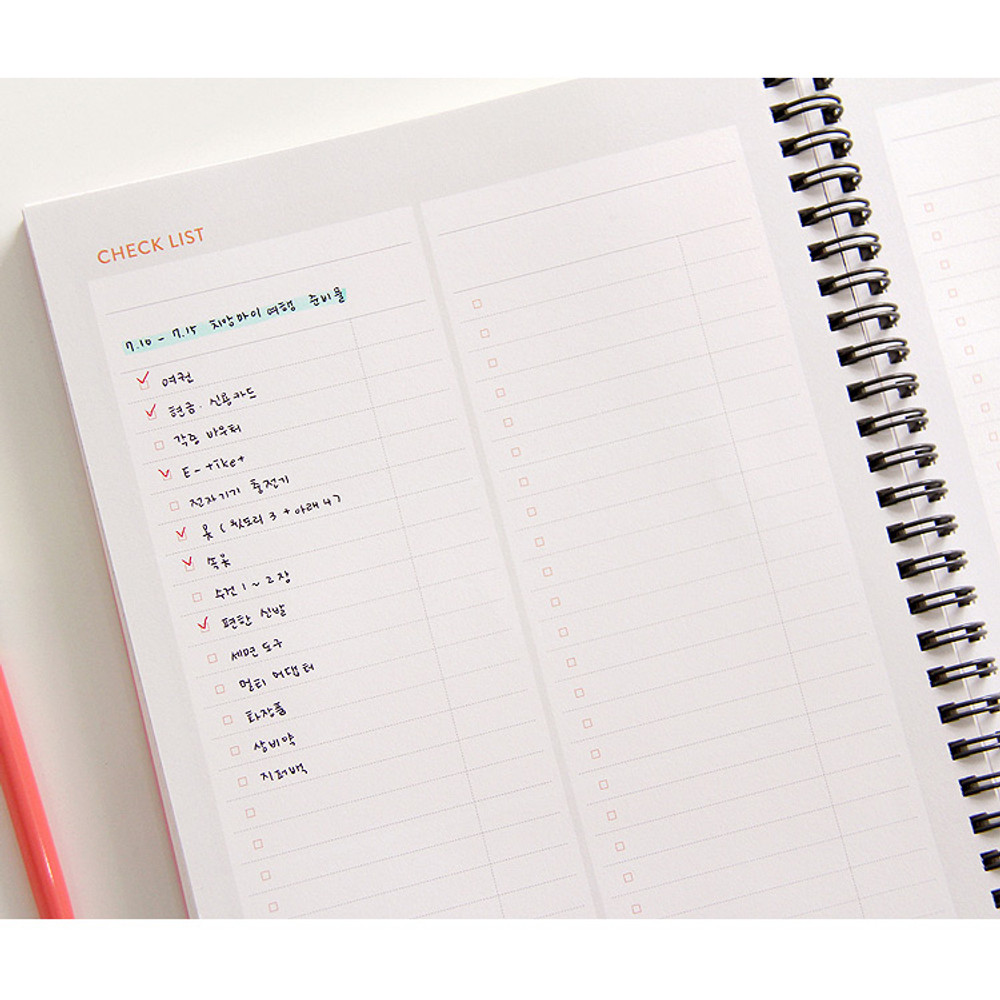 CHECK LIST
7.10 - 7.15 치앙마이 여행 준비물
여권
현금 · 신용카드
각종 바우처
E-tiket
전자기기 충전기
옷 ( 윗도리 3 + 아래 4 )
속옷
수건 1 ~ 2장
편한 신발
세면도구
멀티 어댑터
화장품
상비약
지퍼백